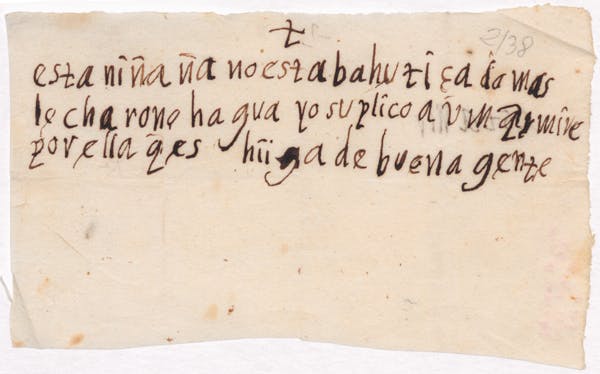 †
2/38
esta niña ña no esta bahutiçada mas
le charone hagua yo suplico a v m q̃ mire
por ella q̃ es hiiga de buena gente